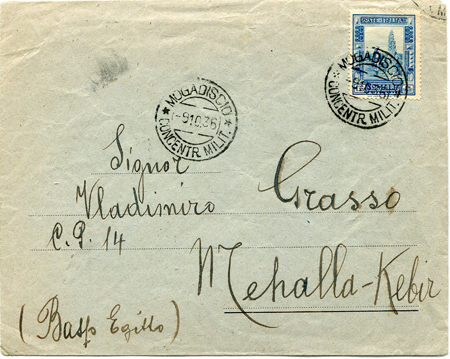 POSTE ITALIANE
SOMALIA
MOGADISCIO
-9.10.36
CONCENTR. MILIT.
MOGADISCIO
CONCENTR. MILIT.
Signor
Vladimiro Grasso
C.P. 14
Mehalla-Kebir
(Basso Egitto)